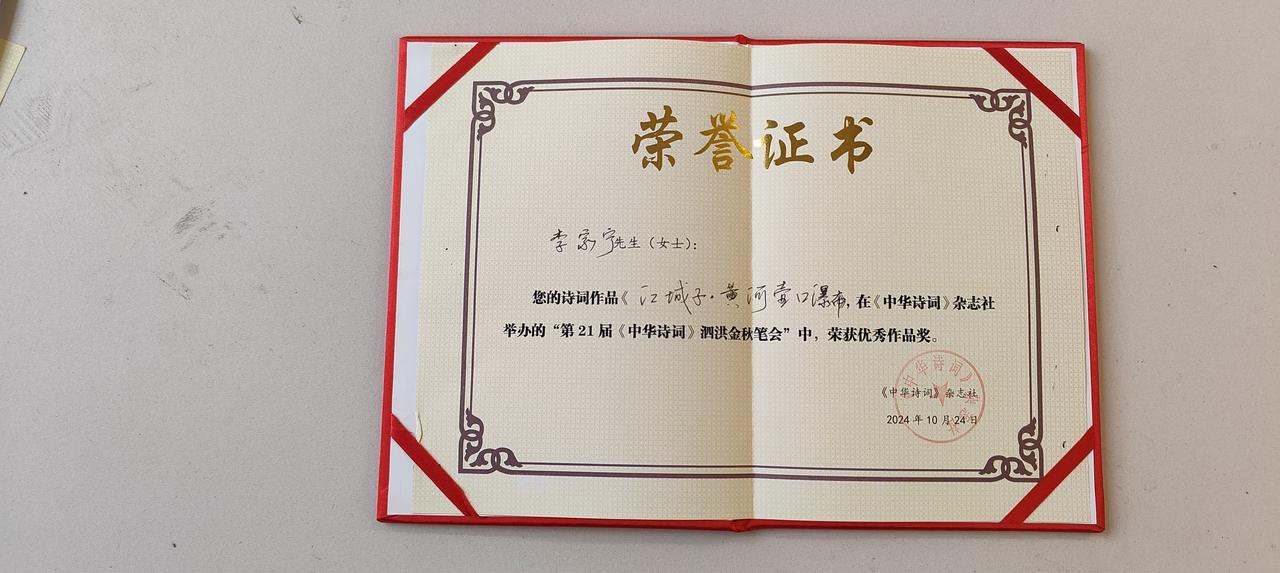 荣誉证书
李家宁先生（女士）：
您的诗词作品《江城子·黄河壶口瀑布，在《中华诗词》杂志社
举办的“第21届《中华诗词》泗洪金秋笔会”中，荣获优秀作品奖。
《中华诗词》杂志社
《中华诗词》杂志社
2024年10月24日